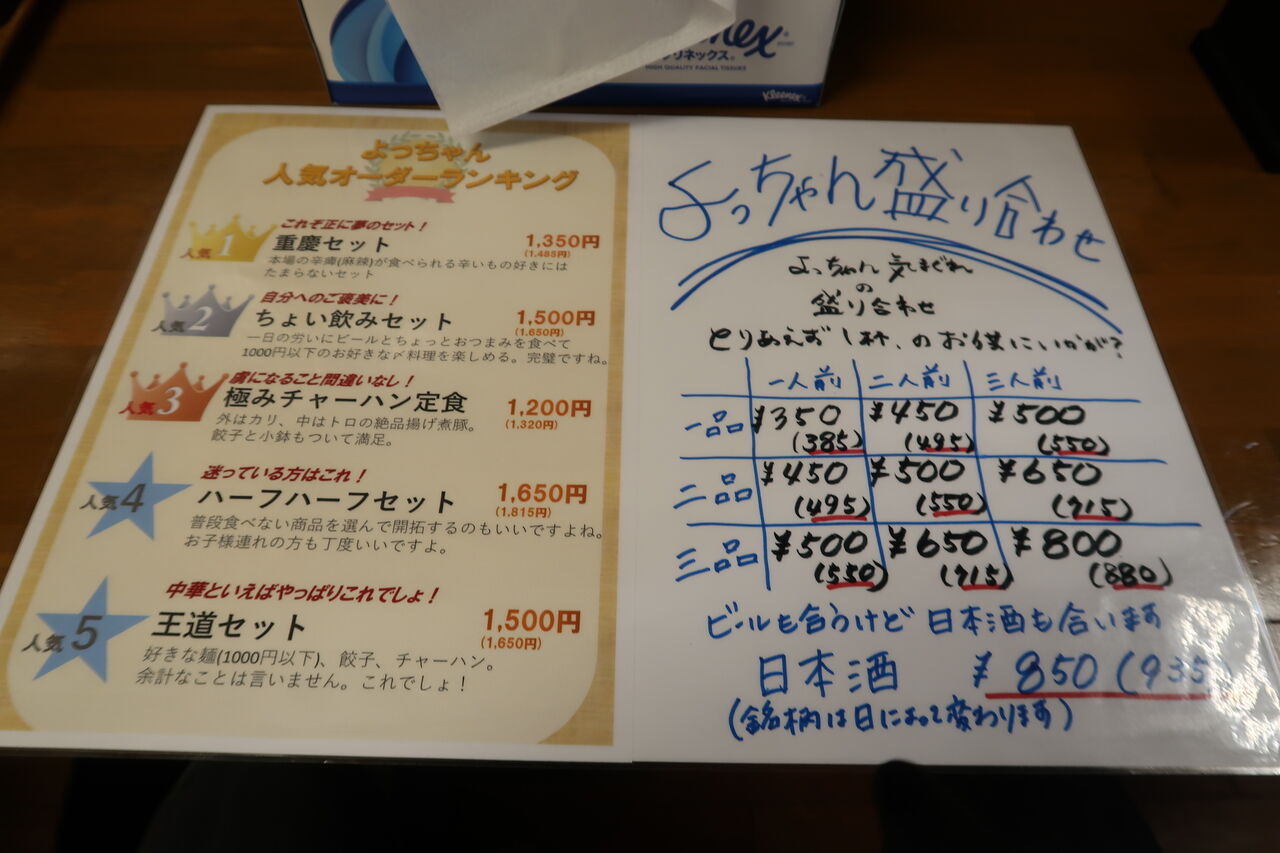 クリネックス®
HIGH QUALITY FACIAL TISSUES
Kleenex
よっちゃん
人気オーダーランキング
これぞ正に夢のセット！
人気1
重慶セット
1,350円
(1,485円)
本場の辛痺(麻辣)が食べられる辛いもの好きには
たまらないセット
自分へのご褒美に！
人気2
ちょい飲みセット
1,500円
(1,650円)
一日の労いにビールとちょっとおつまみを食べて
1000円以下のお好きな〆料理を楽しめる。完璧ですね。
虜になること間違いなし！
人気3
極みチャーハン定食
1,200円
(1,320円)
外はカリ、中はトロの絶品揚げ煮豚。
餃子と小鉢もついて満足。
迷っている方はこれ！
人気4
ハーフハーフセット
1,650円
(1,815円)
普段食べない商品を選んで開拓するのもいいですよね。
お子様連れの方も丁度いいですよ。
中華といえばやっぱりこれでしょ！
人気5
王道セット
1,500円
(1,650円)
好きな麺(1000円以下)、餃子、チャーハン。
余計なことは言いません。これでしょ！
よっちゃん盛り合わせ
よっちゃん気まぐれ
の
盛り合わせ
とりあえず1杯、のお供にいかが？
一人前 二人前 三人前
一品 ¥350 ¥450 ¥500
(385) (495) (550)
二品 ¥450 ¥500 ¥650
(495) (550) (715)
三品 ¥500 ¥650 ¥800
(550) (715) (880)
ビールも合うけど日本酒も合います
日本酒 ¥850(935)
(銘柄は日によって変わります)